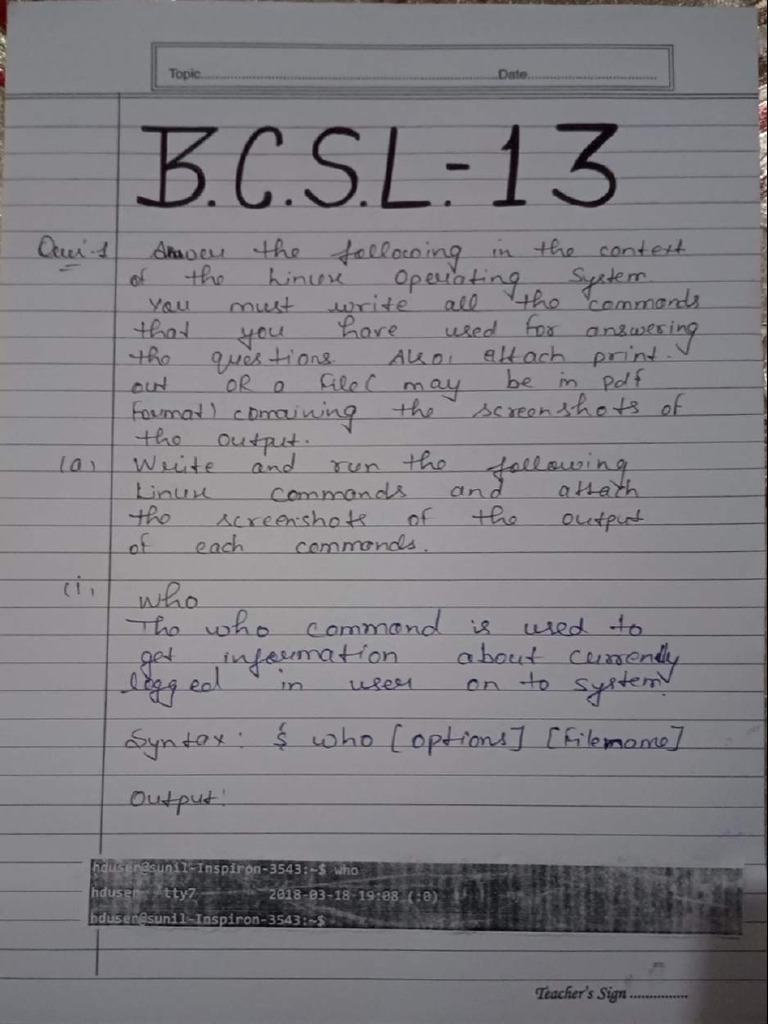 Topic.......................................................Date...............................
B.C.S.L.-13
Que:-1 Answer the following in the context
of the Linux Operating System
You must write all the commands
that you have used for answering
the questions. Also, attach print.
out OR a file( may be in pdf
Format) containing the screenshots of
the output.
(a) Write and run the following
Linux commands and attach
the screenshots of the output
of each commands.
(i) who
The who command is used to
get information about currently
logged in user on to system.
Syntax: $ who [options] [filename]
Output:
hduser@sunil-Inspiron-3543:~$ who
hduser tty7 2018-03-18 19:08 (:0)
hduser@sunil-Inspiron-3543:~$
Teacher's Sign ...............